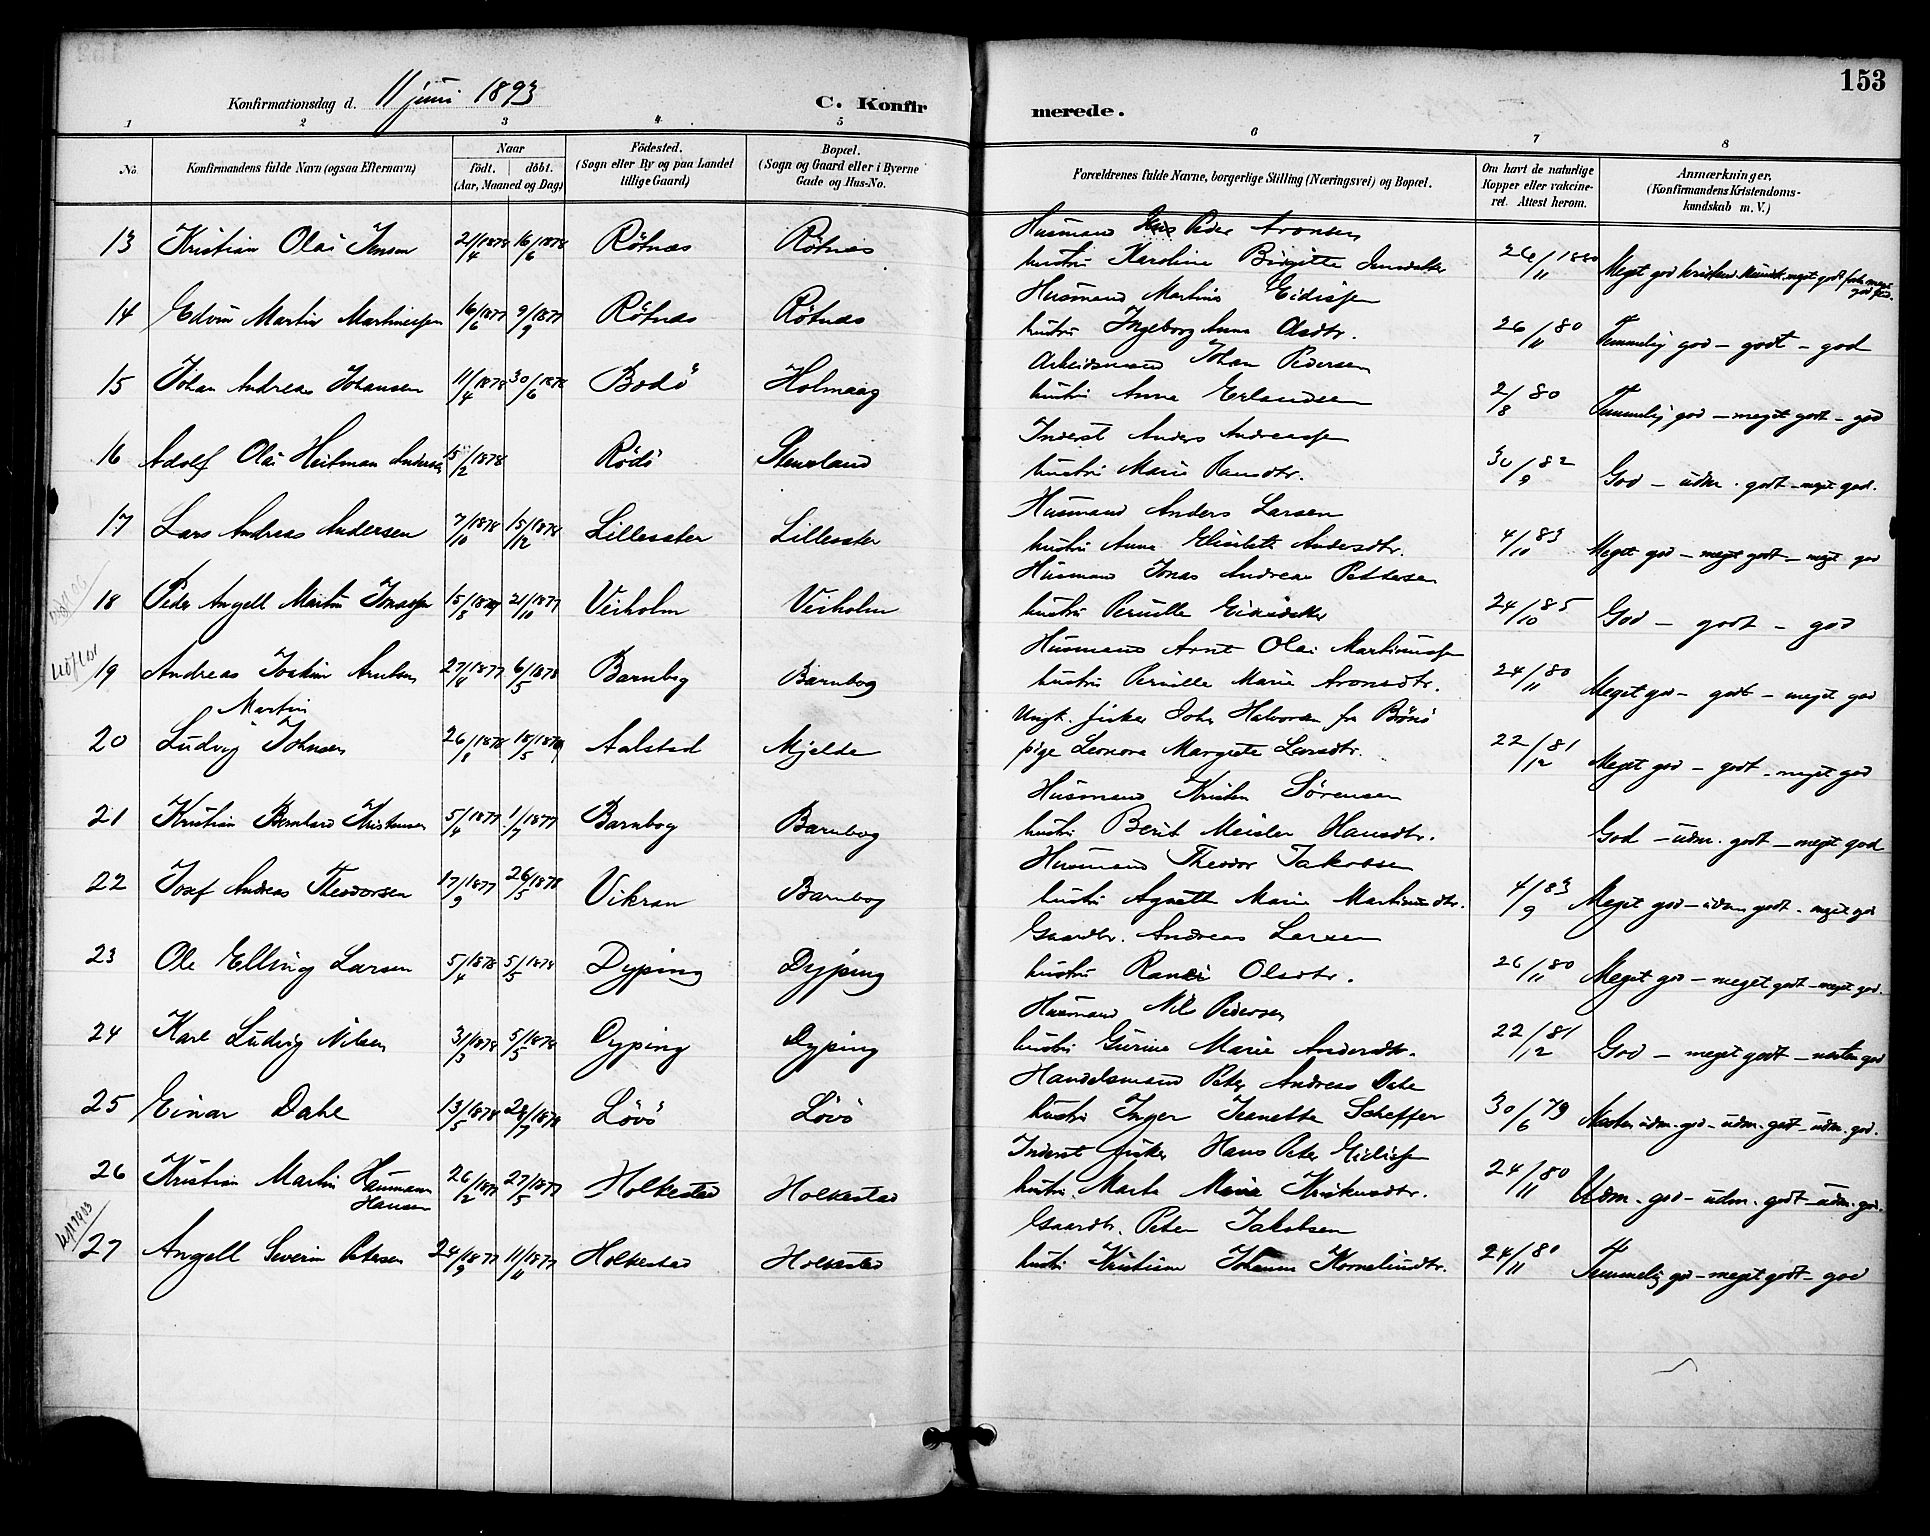 153
Konfirmationsdag d. 11 juni 1893
C. Konfir merede.
1 2 3 4 5 6 7 8
No.
Konfirmandens fulde Navn (ogsaa Efternavn)
Naar
födt. döbt.
(Aar, Maaned og Dag)
Födested.
(Sogn eller By og paa Landet
lillige Gaard)
Bopæl.
(Sogn og Gaard eller i Byerne
Gade og Hus-No.
Forældrenes fulde Navne, borgerlige Stilling (Næringsvei) og Bopæl.
Om havt de naturlige
Kopper eller vakcine-
ret. Attest herom.
Anmærkninger.
(Konfirmandens Kristendoms-
kundskab m. V.)
Husmand Jens Peder Aronsen
13 Kristian Olai Jensen 21/4 1878 16/6 1878 Rötnæs Rötnæs hustru Karoline Birgitte Jensdatter 26/11 1880 Meget god
Husmand Martinus Eidissen
14 Edvin Martin Martinussen 16/6 1877 9/9 1877 Rötnæs Rötnæs hustru Ingeborg Anna Olsdtr. 26/11 80 Temmelig god - godt - god
Arbeidsmand Johan Pedersen
15 Johan Andreas Johansen 11/4 1878 30/6 1878 Bodö Holmaag hustru Anna Erlandsen 2/8 80 Temmelig god - meget godt - god
Inderst Anders Andreassen
16 Adolf Olai Heitman Andersen 15/2 1878 Rödö Stensland hustru Marie Hansdtr. 30/9 82 God - udm. godt - meget god.
Husmand Anders Larsen
17 Lars Andreas Andersen 7/10 1878 15/12 1878 Lillesæter Lillesæter hustru Anna Elisabeth Andersdtr. 4/10 83 Meget god - meget godt - meget god
Husmand Jonas Andreas Pettersen
18 Peder Angell Martin Jonassen 15/8 1877 21/10 1877 Veiholm Veiholm hustru Pernille 24/10 85 God - godt - god
Husmand Arnt Olai Martinussen
19 Andreas Joakim Arntsen 27/11 1877 6/5 1878 Barnbog Barnbog hustru Pernille Marie Aronsdtr. 24/11 80 Meget god - godt - meget god
Martin
Ungk. fisker Johs Halvorsen fra
20 Ludvig Johnsen 26/2 1878 18/5 1879 Aalstad Mjelde pige Leonora Margrete Larsdtr. 22/12 81 Meget god - godt - meget god
Husmand Kristen Sörensen
21 Kristian Bernhard Kristensen 5/4 1877 1/7 1877 Barnbog Barnbog hustru Berit Meisler Hansdtr. God - udm. godt - meget god
Husmand Theodor Jakobsen
22 Josef Andreas Theodorsen 17/9 1877 26/5 1878 Vikran Barnbog hustru Agnette Marie Martinusdtr. 4/9 83 Meget god - udm godt - meget god
Gaardbr. Andreas Larsen
23 Ole Elling Larsen 5/4 1878 5/5 1878 Dyping Dyping hustru Ranei Olsdtr. 26/11 80 Meget god - meget godt - meget god.
Husmand Nils Pedersen
24 Karl Ludvig Nilsen 31/3 1878 5/5 1878 Dyping Dyping hustru Gurine Marie Andersdtr. 22/12 81 God - meget godt - næsten god
Handelsmand Peter Andreas Dahl
25 Einar Dahl 13/5 1878 28/7 1878 Lövö Lövö hustru Inger Jeanette Scheffer 30/6 79 Næsten udm. god - udm. godt - udm. god.
Inderst fisker Hans Peter Eidissen
26 Kristian Martin Haumann Hansen 26/2 1877 27/5 1877 Holkestad Holkestad hustru Marta Marie 24/11 80 Udm. god - udm. godt - udm. god.
Gaardbr. Peter Jakobsen
27 Angell Severin Petersen 24/9 1877 11/11 1877 Holkestad Holkestad hustru Kristiane Johanna Korneliusdtr. 24/11 80 Temmelig god - meget godt - god